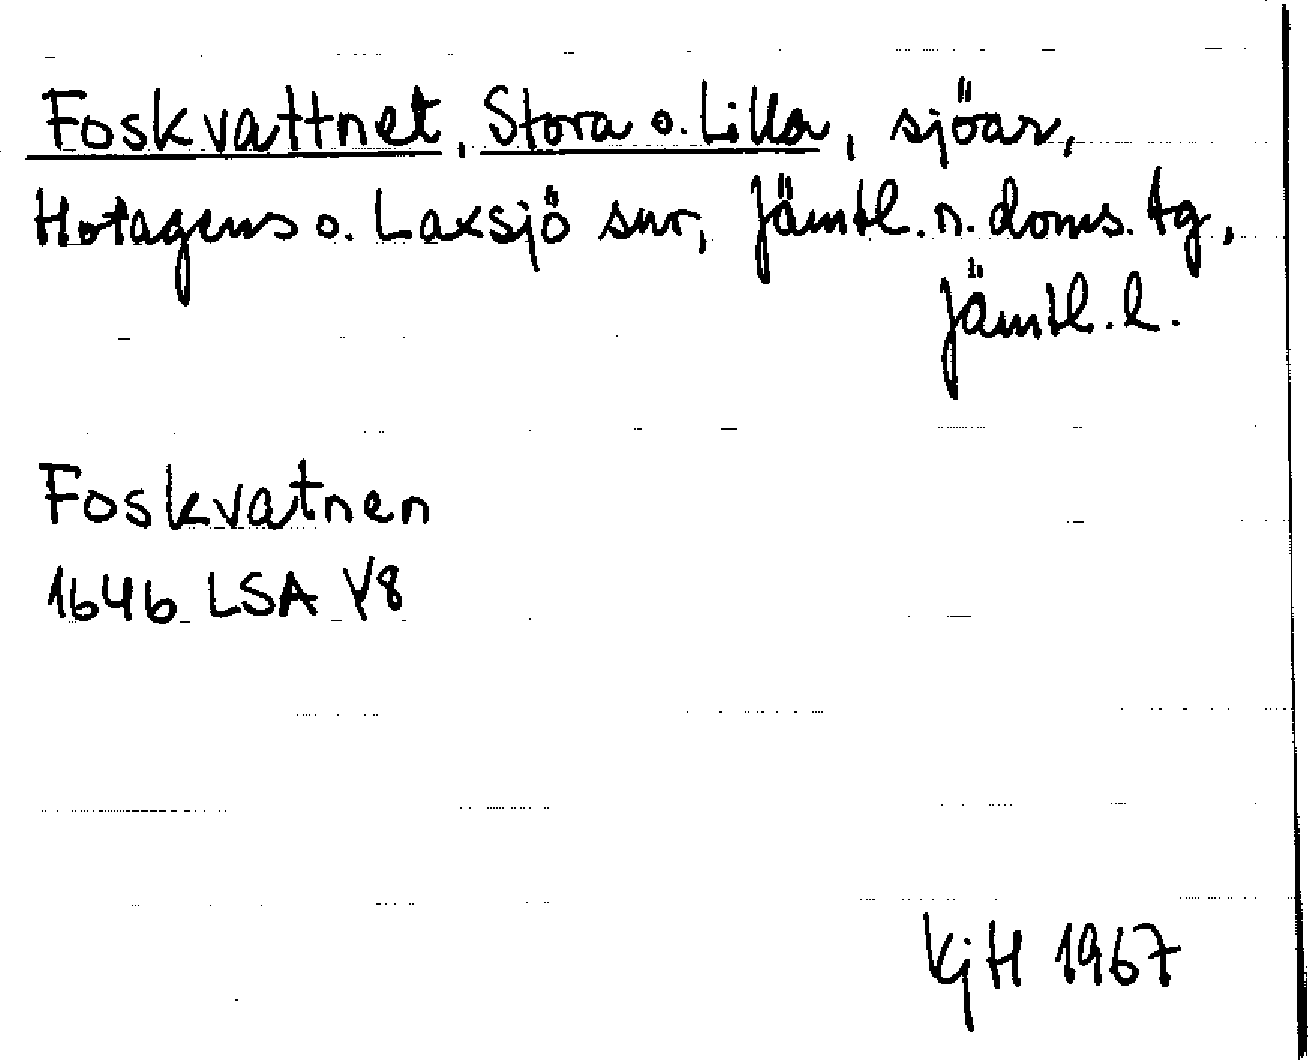 Foskvattnet, Stora o. Lilla, sjöar,
Hotagens o. Laxsjö snr, Jämtl. n. doms. tg,
Jämtl. l.
Foskvatnen
1646 LSA Y8
KjH 1967